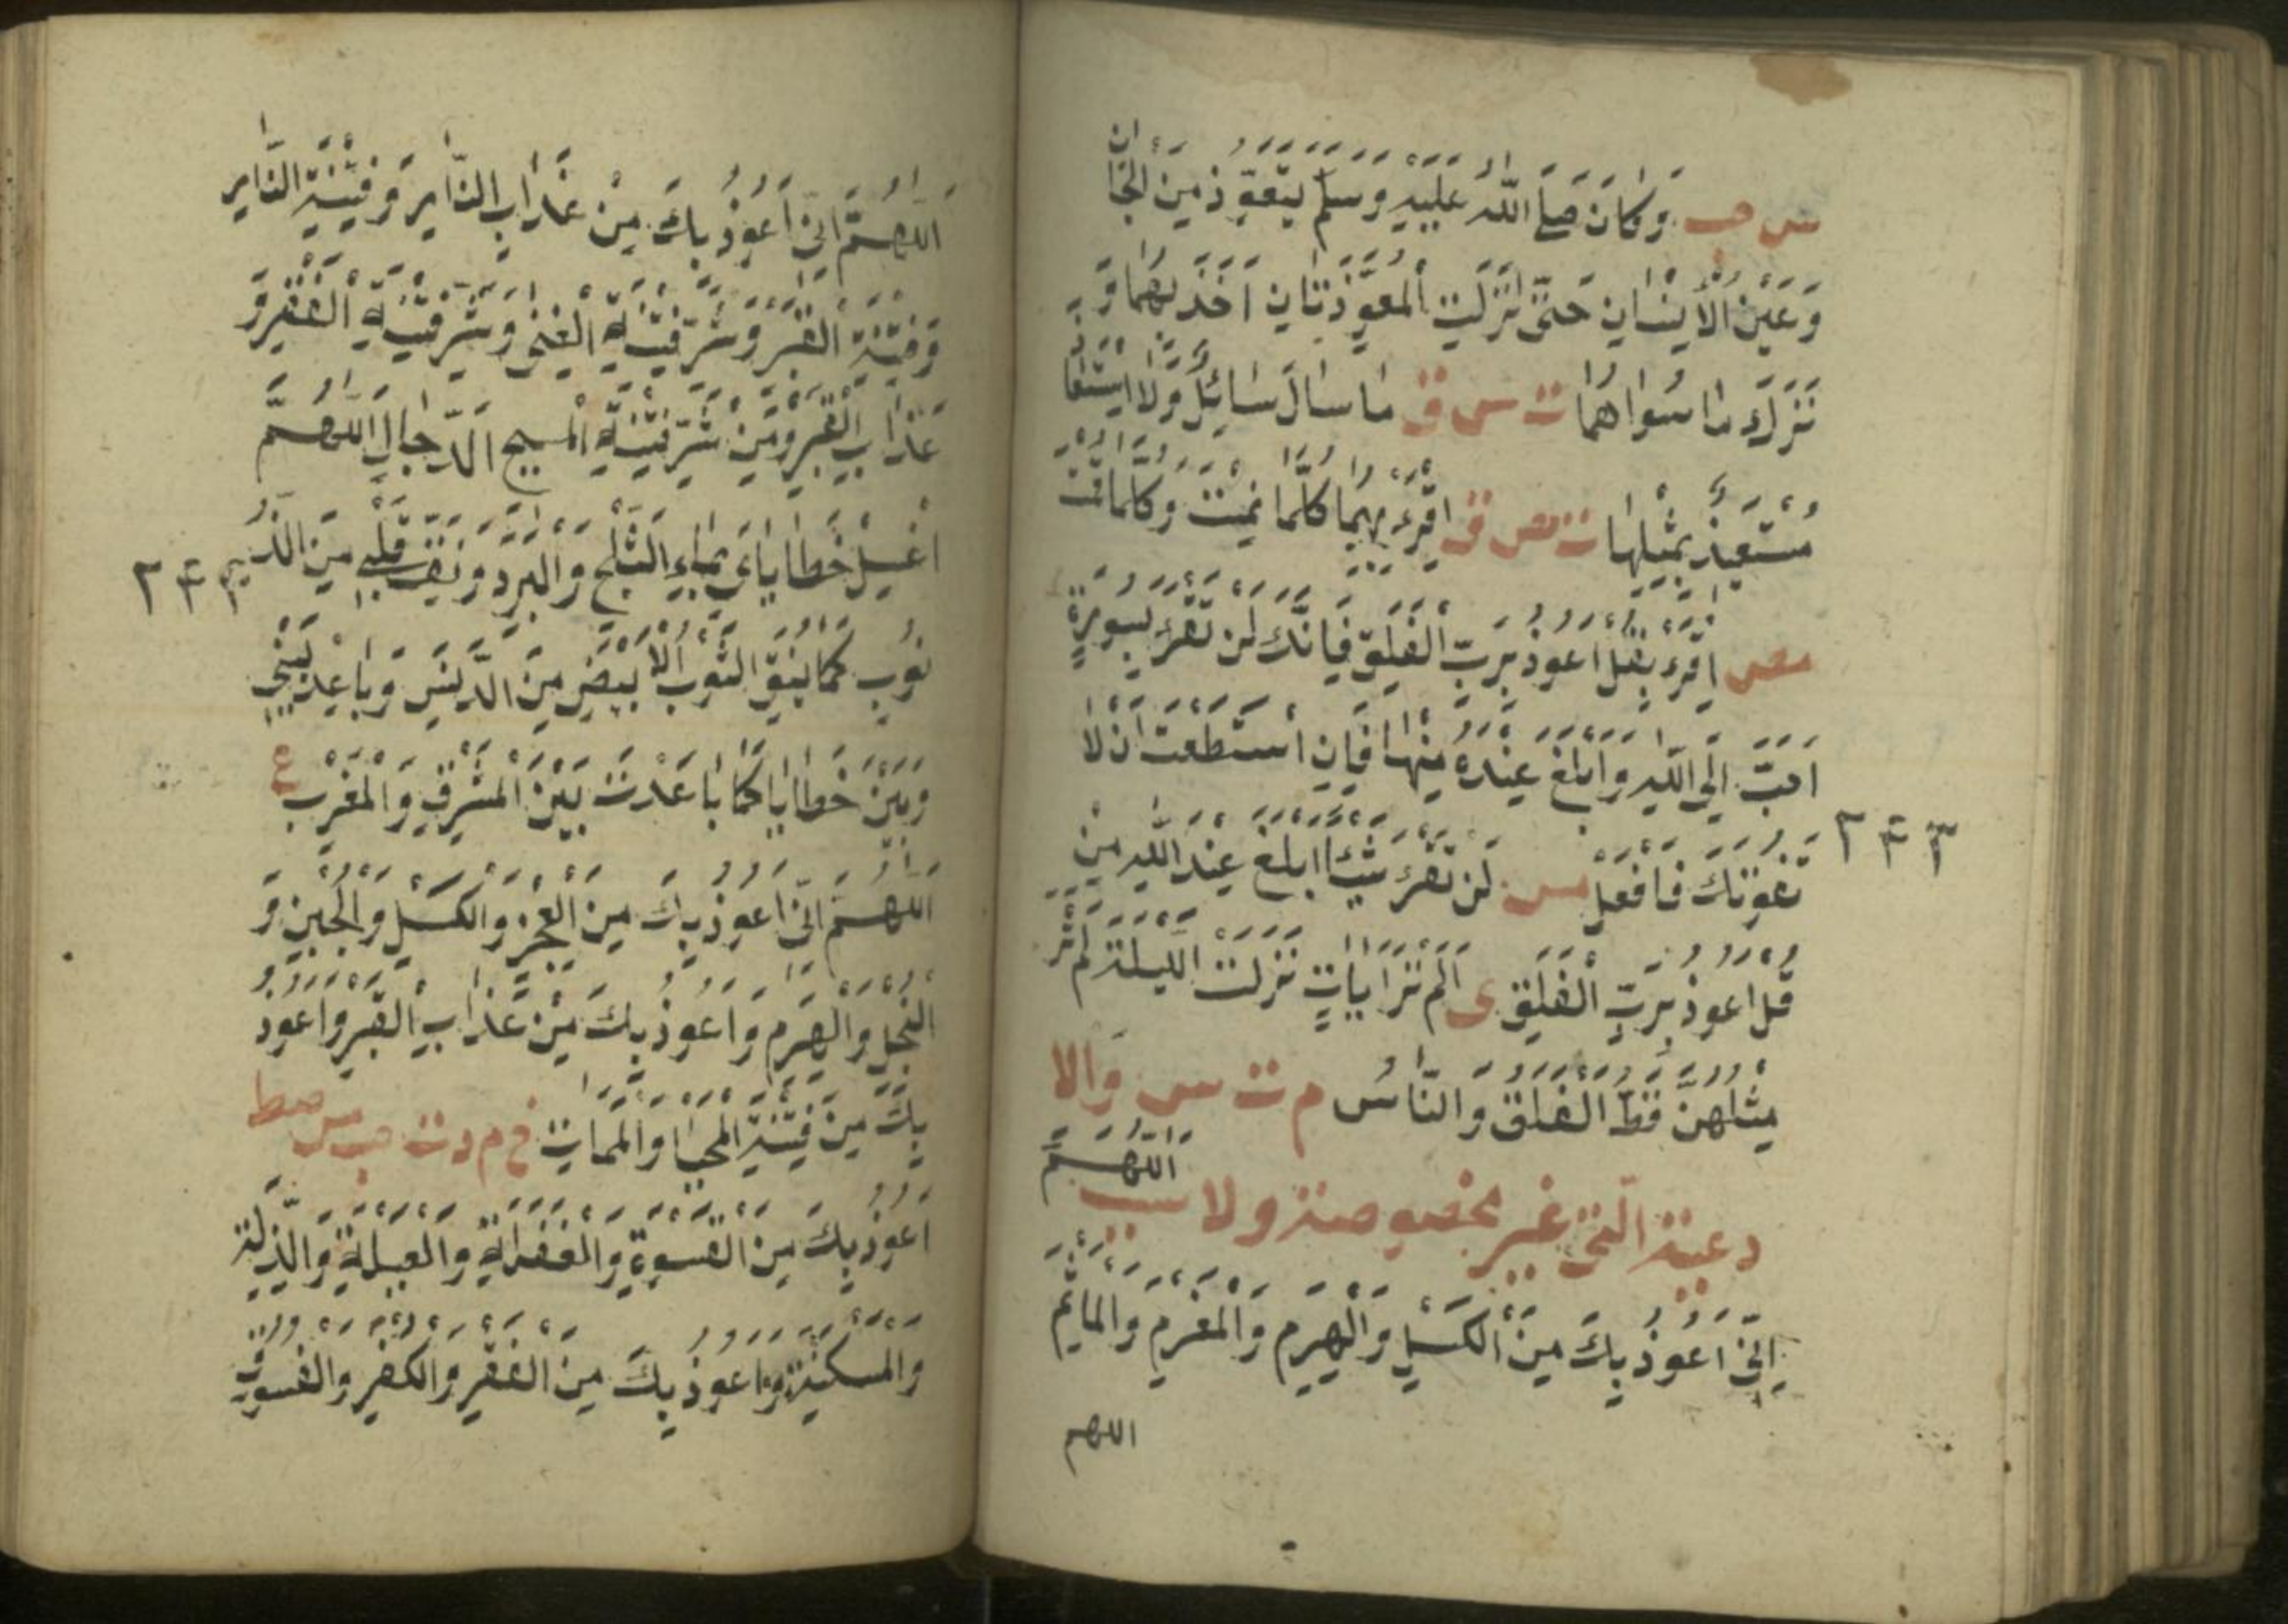 س حب وَكَانَ صَلَّى اللّٰهُ عَلَيْهِ وَسَلَّمَ يَتَعَوَّذُ مِنَ الْجَانِّ
وَعَيْنِ الْاِنْسَانِ حَتّٰى نَزَلَتِ الْمُعَوِّذَتَانِ اَخَذَ بِهِمَا وَ
تَرَكَ مَا سُوَاهُمَا ت س ق مَا سَالَ سَائِلٌ وَلَا اسْتَعَاذَ
مُسْتَعِيذٌ بِمِثْلِهَا ت مص ق اِقْرَءْ بِهِمَا كُلَّمَا نِمْتَ وَكُلَّمَا قُمْتَ
مص اِقْرَءْ بِقُلْ اَعُوذُ بِرَبِّ الْفَلَقِ فَاِنَّكَ لَنْ تَقْرَءَ بِسُورَةٍ
اَحَبَّ اِلَى اللّٰهِ وَاَبْلَغَ عِنْدَهُ مِنْهَا فَاِنِ اسْتَطَعْتَ اَنْ لَا
تَفُوتَكَ فَافْعَلْ مس لَنْ تَقْرَءَ شَيْئًا اَبْلَغَ عِنْدَ اللّٰهِ مِنْ
قُلْ اَعُوذُ بِرَبِّ الْفَلَقِ ى اَلَمْ تَرَ اٰيَاتٍ نَزَلَتِ اللَّيْلَةَ لَمْ تَرَ
مِثْلَهُنَّ قَطُّ الْفَلَقُ وَالنَّاسُ م ت س وَالا
دعية الّتى غير مخصوصة ولا سبب اَللّٰهُمَّ
اِنِّى اَعُوذُ بِكَ مِنَ الْكَسَلِ وَالْهَرَمِ وَالْمَغْرَمِ وَالْمَاْثَمِ
اللهم
٢٤٣
اَللّٰهُمَّ اِنِّى اَعُوذُ بِكَ مِنْ عَذَابِ النَّارِ وَفِتْنَةِ النَّارِ
وَفِتْنَةِ الْقَبْرِ وَشَرِّ فِتْنَةِ الْغِنٰى وَشَرِّ فِتْنَةِ الْفَقْرِ وَ
عَذَابِ الْقَبْرِ وَمِنْ شَرِّ فِتْنَةِ الْمَسِيحِ الدَّجَّالِ اَللّٰهُمَّ
اغْسِلْ خَطَايَاىَ بِمَاءِ الثَّلْجِ وَالْبَرَدِ وَنَقِّ قَلْبِى مِنَ الذُّ
نُوبِ كَمَا يُنَقَّ الثَّوْبُ الْاَبْيَضُ مِنَ الدَّنَسِ وَبَاعِدْ بَيْنِى
وَبَيْنَ خَطَايَا كَمَا بَاعَدْتَ بَيْنَ الْمَشْرِقِ وَالْمَغْرِبِ ع
اَللّٰهُمَّ اِنِّى اَعُوذُ بِكَ مِنَ الْعَجْزِ وَالْكَسَلِ وَالْجُبْنِ وَ
الْبُخْلِ وَالْهَرَمِ وَاَعُوذُ بِكَ مِنْ عَذَابِ الْقَبْرِ وَاَعُوذُ
بِكَ مِنْ فِتْنَةِ الْمَحْيَا وَالْمَمَاتِ خ م د ت حب مس صط
اَعُوذُ بِكَ مِنَ الْقَسْوَةِ وَالْغَفْلَةِ وَالْعَيْلَةِ وَالذِّلَّةِ
وَالْمَسْكَنَةِ وَاَعُوذُ بِكَ مِنَ الْفَقْرِ وَالْكُفْرِ وَالْفُسُوقِ
٢٤٣